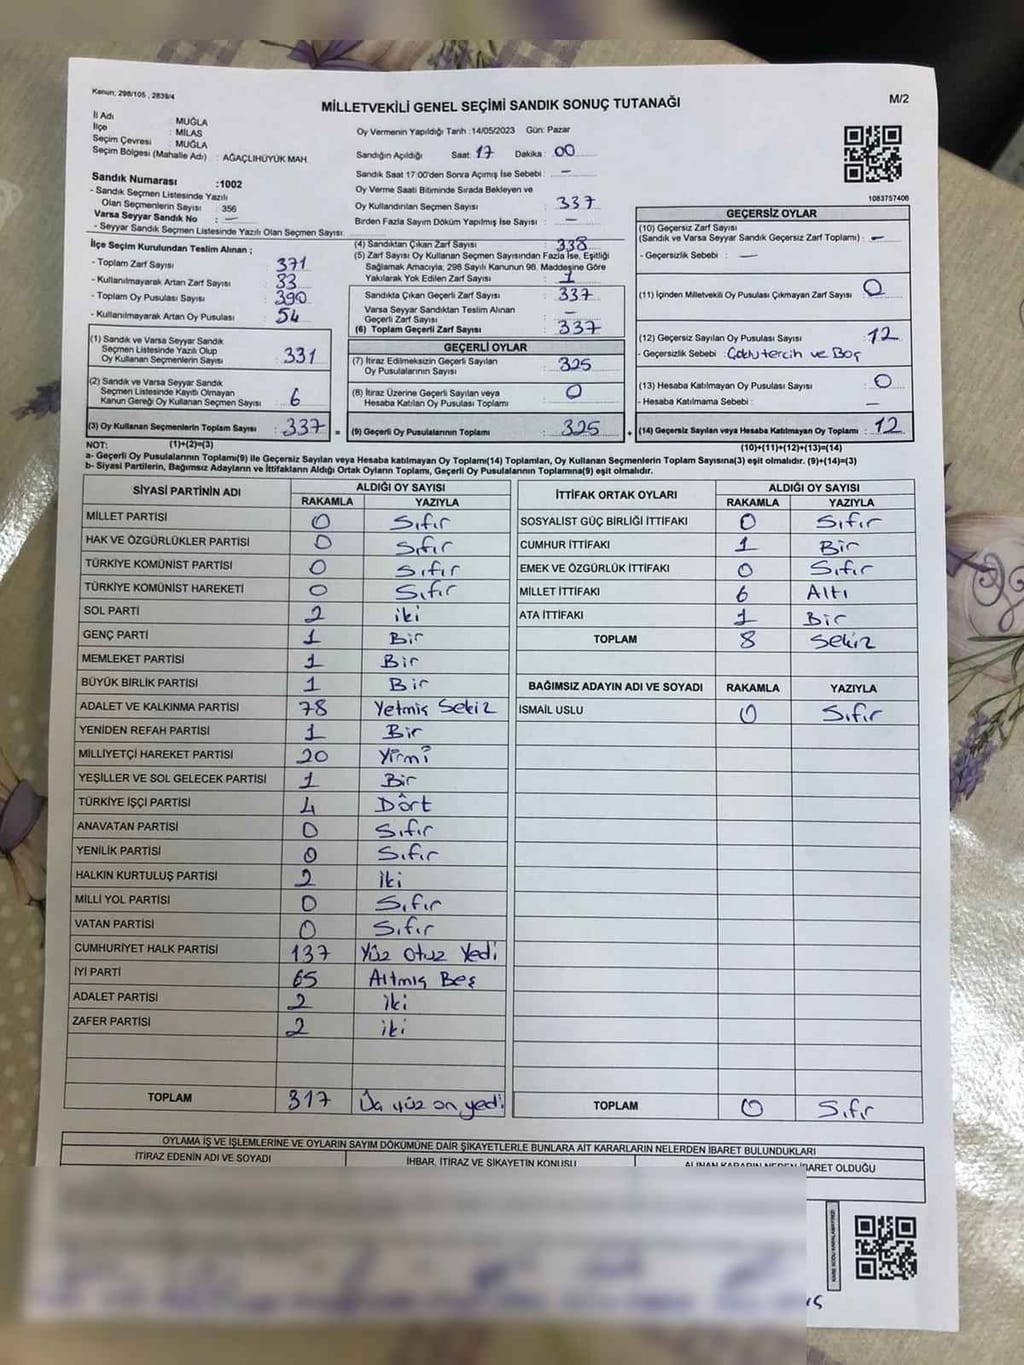 Kanun: 298/105 , 2839/4
MİLLETVEKİLİ GENEL SEÇİMİ SANDIK SONUÇ TUTANAĞI
M/2
İl Adı : MUĞLA
İlçe : MİLAS
Seçim Çevresi : MUĞLA
Seçim Bölgesi (Mahalle Adı) : AĞAÇLIHÜYÜK MAH.
Sandık Numarası :1002
- Sandık Seçmen Listesinde Yazılı
Olan Seçmenlerin Sayısı : 356
Varsa Seyyar Sandık No : —
- Seyyar Sandık Seçmen Listesinde Yazılı Olan Seçmen Sayısı:
Oy Vermenin Yapıldığı Tarih :14/05/2023 Gün: Pazar
Sandığın Açıldığı Saat: 17 Dakika : 00
Sandık Saat 17:00'den Sonra Açımış İse Sebebi : —
Oy Verme Saati Bitiminde Sırada Bekleyen ve
Oy Kullandırılan Seçmen Sayısı : 337
Birden Fazla Sayım Döküm Yapılmış İse Sayısı : —
1083757406
İlçe Seçim Kurulundan Teslim Alınan ;
- Toplam Zarf Sayısı : 371
- Kullanılmayarak Artan Zarf Sayısı : 33
- Toplam Oy Pusulası Sayısı : 390
- Kullanılmayarak Artan Oy Pusulası : 54
(1) Sandık ve Varsa Seyyar Sandık
Seçmen Listesinde Yazılı Olup
Oy Kullanan Seçmenlerin Sayısı : 331
(2) Sandık ve Varsa Seyyar Sandık
Seçmen Listesinde Kayıtlı Olmayan
Kanun Gereği Oy Kullanan Seçmen Sayısı : 6
(3) Oy Kullanan Seçmenlerin Toplam Sayısı : 337 =
(4) Sandıktan Çıkan Zarf Sayısı : 338
(5) Zarf Sayısı Oy Kullanan Seçmen Sayısından Fazla İse, Eşitliği
Sağlamak Amacıyla, 298 Sayılı Kanunun 98. Maddesine Göre
Yakılarak Yok Edilen Zarf Sayısı : 1
Sandıkta Çıkan Geçerli Zarf Sayısı : 337
Varsa Seyyar Sandıktan Teslim Alınan
Geçerli Zarf Sayısı : —
(6) Toplam Geçerli Zarf Sayısı : 337
GEÇERLİ OYLAR
(7) İtiraz Edilmeksizin Geçerli Sayılan
Oy Pusulalarının Sayısı : 325
(8) İtiraz Üzerine Geçerli Sayılan veya
Hesaba Katılan Oy Pusulası Toplamı : 0
(9) Geçerli Oy Pusulalarının Toplamı : 325 +
GEÇERSİZ OYLAR
(10) Geçersiz Zarf Sayısı
(Sandık ve Varsa Seyyar Sandık Geçersiz Zarf Toplamı) : —
- Geçersizlik Sebebi : —
(11) İçinden Milletvekili Oy Pusulası Çıkmayan Zarf Sayısı : 0
(12) Geçersiz Sayılan Oy Pusulası Sayısı : 12
- Geçersizlik Sebebi : Çoklu tercih ve Boş
(13) Hesaba Katılmayan Oy Pusulası Sayısı : 0
- Hesaba Katılmama Sebebi : —
(14) Geçersiz Sayılan veya Hesaba Katılmayan Oy Toplamı : 12
NOT: (1)+(2)=(3) (10)+(11)+(12)+(13)=(14)
a- Geçerli Oy Pusulalarının Toplamı(9) ile Geçersiz Sayılan veya Hesaba katılmayan Oy Toplamı(14) Toplamları, Oy Kullanan Seçmenlerin Toplam Sayısına(3) eşit olmalıdır. (9)+(14)=(3)
b- Siyasi Partilerin, Bağımsız Adayların ve İttifakların Aldığı Ortak Oyların Toplamı, Geçerli Oy Pusulalarının Toplamına(9) eşit olmalıdır.
SİYASİ PARTİNİN ADI ALDIĞI OY SAYISI
RAKAMLA YAZIYLA
MİLLET PARTİSİ 0 Sıfır
HAK VE ÖZGÜRLÜKLER PARTİSİ 0 Sıfır
TÜRKİYE KOMÜNİST PARTİSİ 0 Sıfır
TÜRKİYE KOMÜNİST HAREKETİ 0 Sıfır
SOL PARTİ 2 iki
GENÇ PARTİ 1 Bir
MEMLEKET PARTİSİ 1 Bir
BÜYÜK BİRLİK PARTİSİ 1 Bir
ADALET VE KALKINMA PARTİSİ 78 Yetmiş Sekiz
YENİDEN REFAH PARTİSİ 1 Bir
MİLLİYETÇİ HAREKET PARTİSİ 20 Yirmi
YEŞİLLER VE SOL GELECEK PARTİSİ 1 Bir
TÜRKİYE İŞÇİ PARTİSİ 4 Dört
ANAVATAN PARTİSİ 0 Sıfır
YENİLİK PARTİSİ 0 Sıfır
HALKIN KURTULUŞ PARTİSİ 2 İki
MİLLİ YOL PARTİSİ 0 Sıfır
VATAN PARTİSİ 0 Sıfır
CUMHURİYET HALK PARTİSİ 137 Yüz Otuz Yedi
İYİ PARTİ 65 Altmış Beş
ADALET PARTİSİ 2 iki
ZAFER PARTİSİ 2 iki
TOPLAM 317 Üç yüz on yedi
İTTİFAK ORTAK OYLARI ALDIĞI OY SAYISI
RAKAMLA YAZIYLA
SOSYALİST GÜÇ BİRLİĞİ İTTİFAKI 0 Sıfır
CUMHUR İTTİFAKI 1 Bir
EMEK VE ÖZGÜRLÜK İTTİFAKI 0 Sıfır
MİLLET İTTİFAKI 6 Altı
ATA İTTİFAKI 1 Bir
TOPLAM 8 Sekiz
BAĞIMSIZ ADAYIN ADI VE SOYADI RAKAMLA YAZIYLA
İSMAİL USLU 0 Sıfır
TOPLAM 0 Sıfır
OYLAMA İŞ VE İŞLEMLERİNE VE OYLARIN SAYIM DÖKÜMÜNE DAİR ŞİKAYETLERLE BUNLARA AİT KARARLARIN NELERDEN İBARET BULUNDUKLARI
İTİRAZ EDENİN ADI VE SOYADI İHBAR, İTİRAZ VE ŞİKAYETİN KONUSU ALINAN KARARIN NEDEN İBARET OLDUĞU